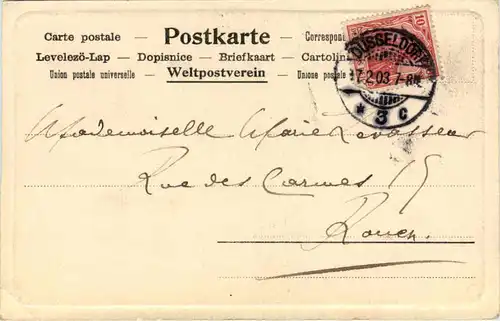 Carte postale — Postkarte — Correspon
Levelezö-Lap — Dopisnice — Briefkaart — Cartolin
Union postale universelle — Weltpostverein — Unione postale
10
DÜSSELDORF
17.2.03 7-8N.
* 3 c
Mademoiselle Marie Levasseur
Rue des Carmes 15
Rouen.